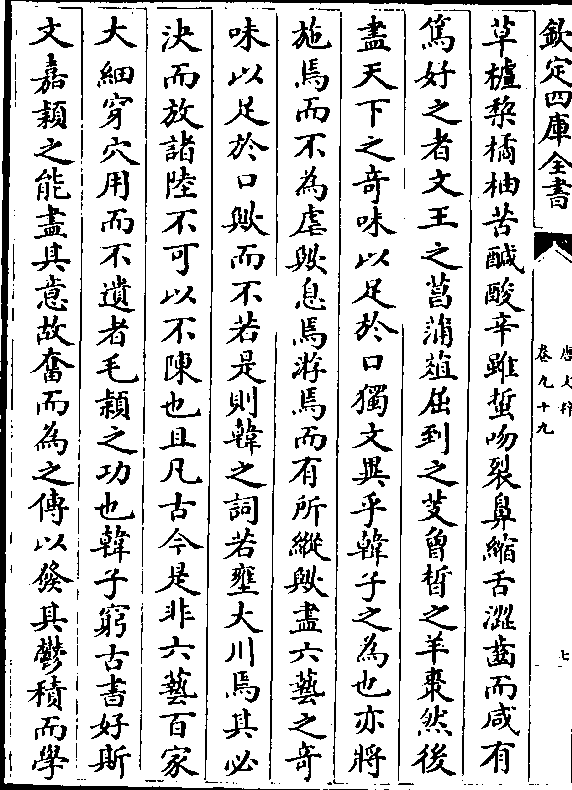 欽定四庫全書
唐文粹
卷九十九
七
草櫨棃橘柚苦醎酸辛雖蜇吻裂鼻縮舌澀齒而咸有
篤好之者文王之菖蒲葅屈到之芰曾晳之羊棗然後
盡天下之竒味以足於口獨文異乎韓子之為也亦將
施焉而不為虐歟息焉游焉而有所縱歟盡六藝之竒
味以足於口歟而不若是則韓之詞若壅大川焉其必
決而放諸陸不可以不陳也且凡古今是非六藝百家
大細穿穴用而不遺者毛穎之功也韓子窮古書好斯
文嘉穎之能盡其意故奮而為之傳以發其鬱積而學